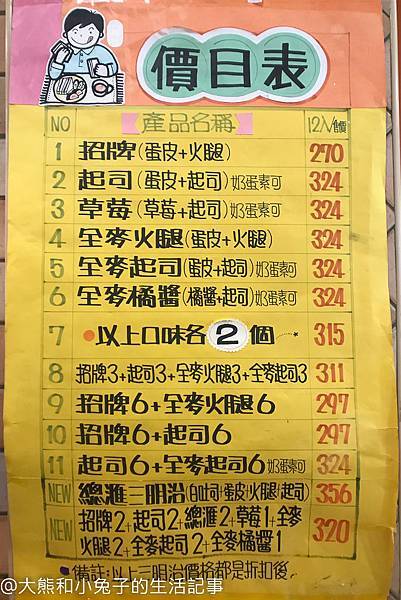 價目表
NO 產品名稱 12入/售價
1 招牌(蛋皮+火腿) 270
2 起司(蛋皮+起司)奶蛋素可 324
3 草莓(草莓+起司)奶蛋素可 324
4 全麥火腿(蛋皮+火腿) 324
5 全麥起司(蛋皮+起司)奶蛋素可 324
6 全麥橘醬(橘醬+起司)奶蛋素可 324
7 以上口味各2個 315
8 招牌3+起司3+全麥火腿3+全麥起司3 311
9 招牌6+全麥火腿6 297
10 招牌6+起司6 297
11 起司6+全麥起司6奶蛋素可 324
NEW 總滙三明治(白吐司+蛋皮+火腿+起司) 356
NEW 招牌2+起司2+總滙2+草莓1+全麥
火腿2+全麥起司2+全麥橘醬1 320
備註:以上三明治價格都是折扣後
@大熊和小兔子的生活記事